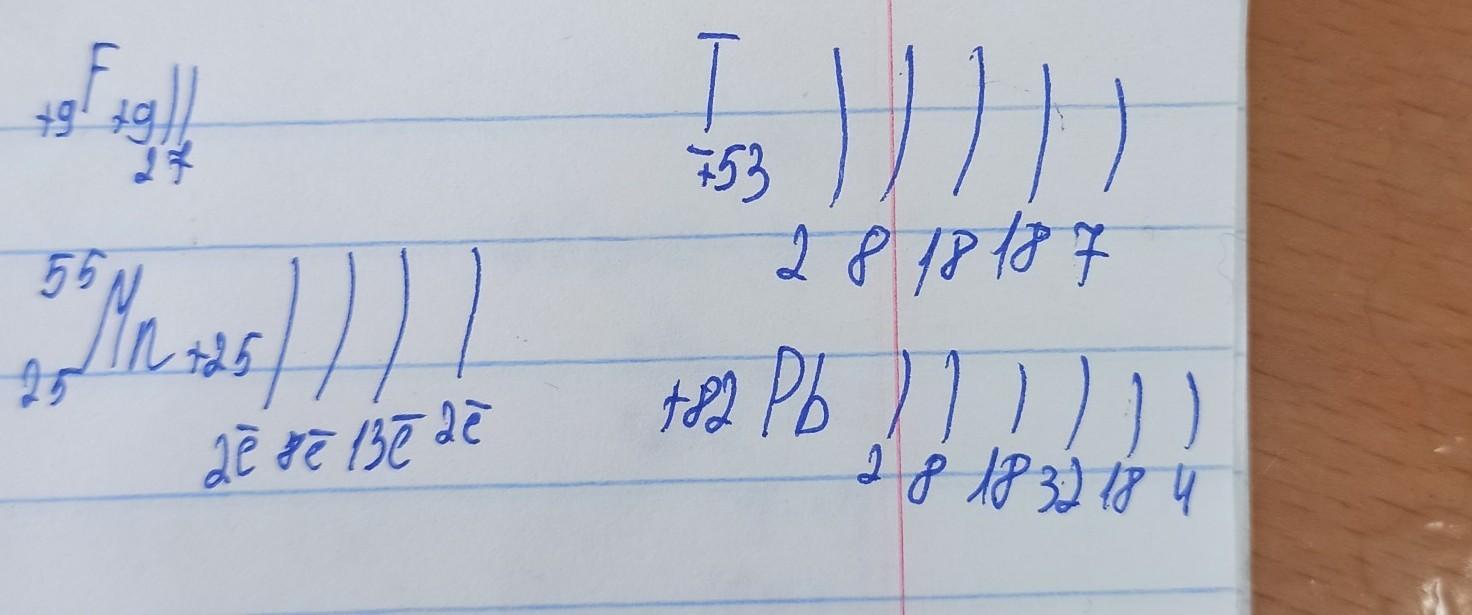 +9 F +9
2 7
I
+53
2 8 18 18 7
55
25 Mn +25
2ē 8ē 13ē 2ē
+82 Pb
2 8 18 32 18 4